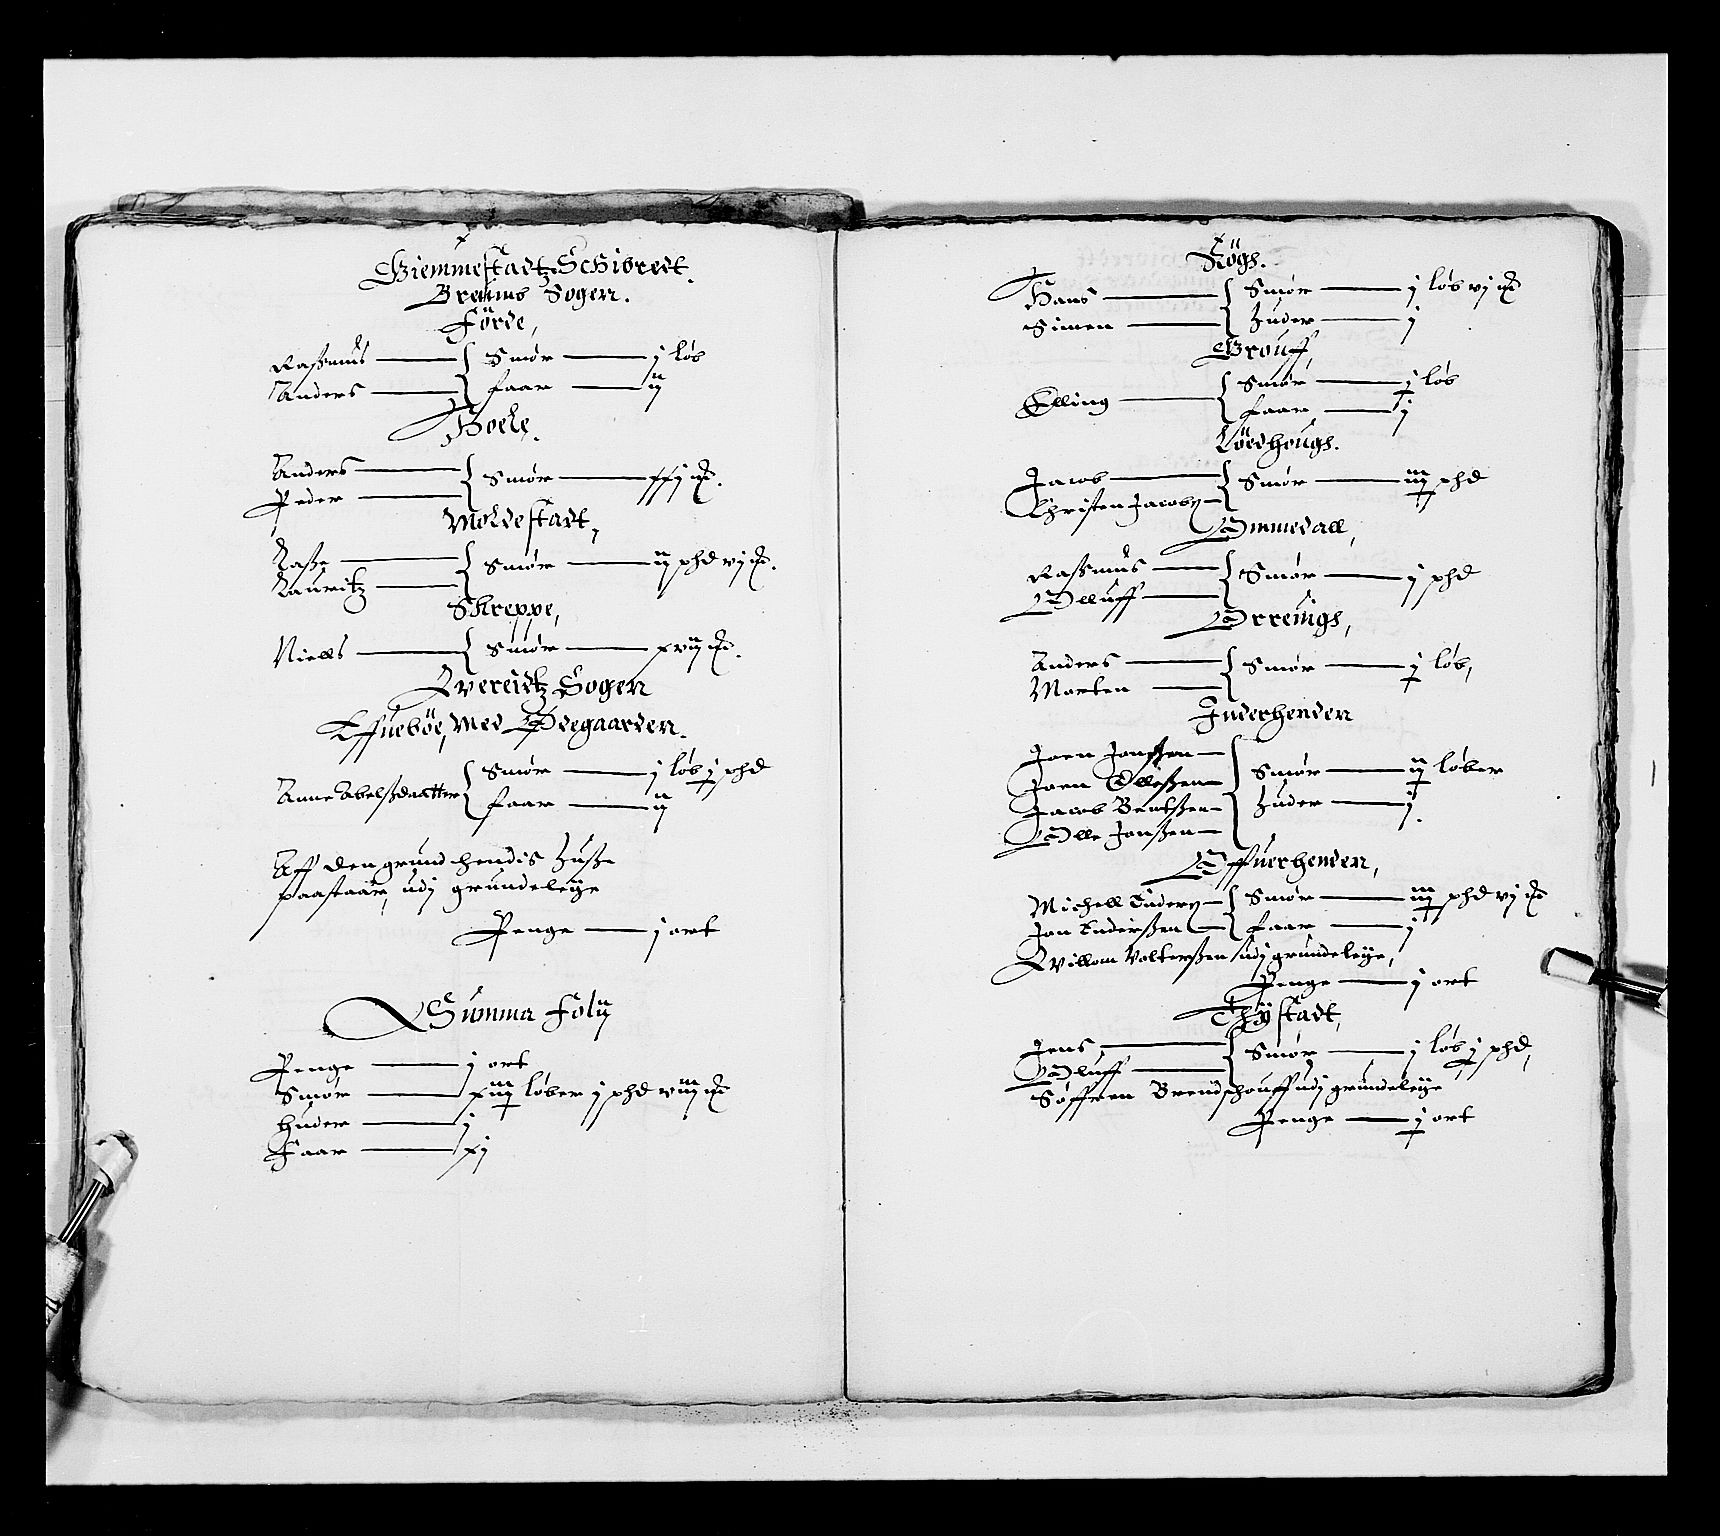 Giemmestadtz Schibredt.
Breums Sogen.
Förde,
Rassmus — Smør — j løb
Anders — faar — ij
Hoele.
Anders — Smør — xxj
Peder —
Moldestadt,
Lasse — Smør — ij phd vj
Lauritz —
Skreppe,
Niells — Smør — xvij
Evereidtz Sogen
Effuebøe, med Ødegaarden.
Anne Abelssdaatter — Smør — j løb j phd
faar — ij
Aff den grund hendis husse
paastaar, udj grundeleye
Penge — j ort
Summa Folij
Penge — j ort
Smør — xiiij løber j phd viij
Huder — j
Faar — xj
Røgs.
Hans — Smør — j løb vj
Simen — Huder — j
Grouff,
Elling — Smør — j løb
faar — j
Løedhougs.
Jacob — Smør — iiij phd
Christen Jacobs —
Ommedall,
Rassmus — Smør — j phd
Olluff —
Orrengs,
Anders — Smør — j løb,
Morten —
Inderhenden
Joen Jonssen — Smør — ij løber
Joen Ellessen — Huder — j.
Jacob Bentssen —
Olle Jonssen —
Offuerhenden,
Michell Enders — Smør — iiij phd vj
Jon Enderssen — faar — j
Willom Volterssen udj grundeleye,
Penge — j ort
Thystadt,
Jens, — Smør — j løb j phd,
Oluff —
Søffren Brendschouff udj grundeleye
Penge — j ort